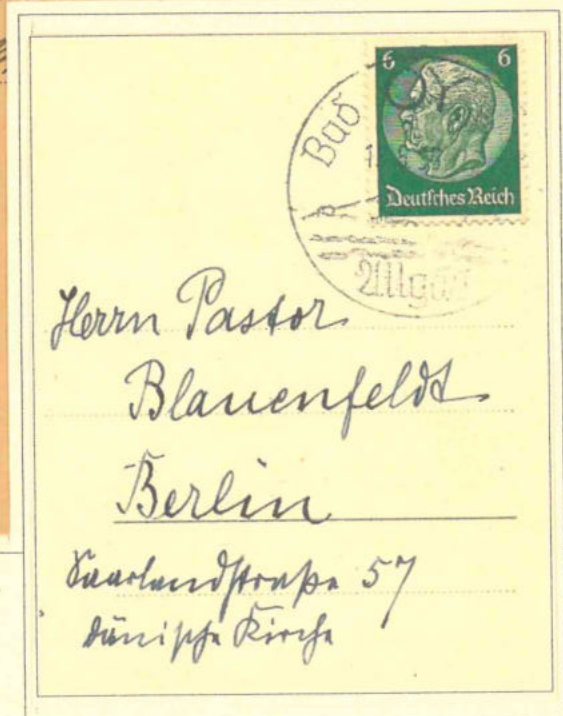 6 6
Deutsches Reich
Bad Oy
Allgäu
Herrn Pastor
Blauenfeldt
Berlin
Saarlandstraße 57
dänische Kirche